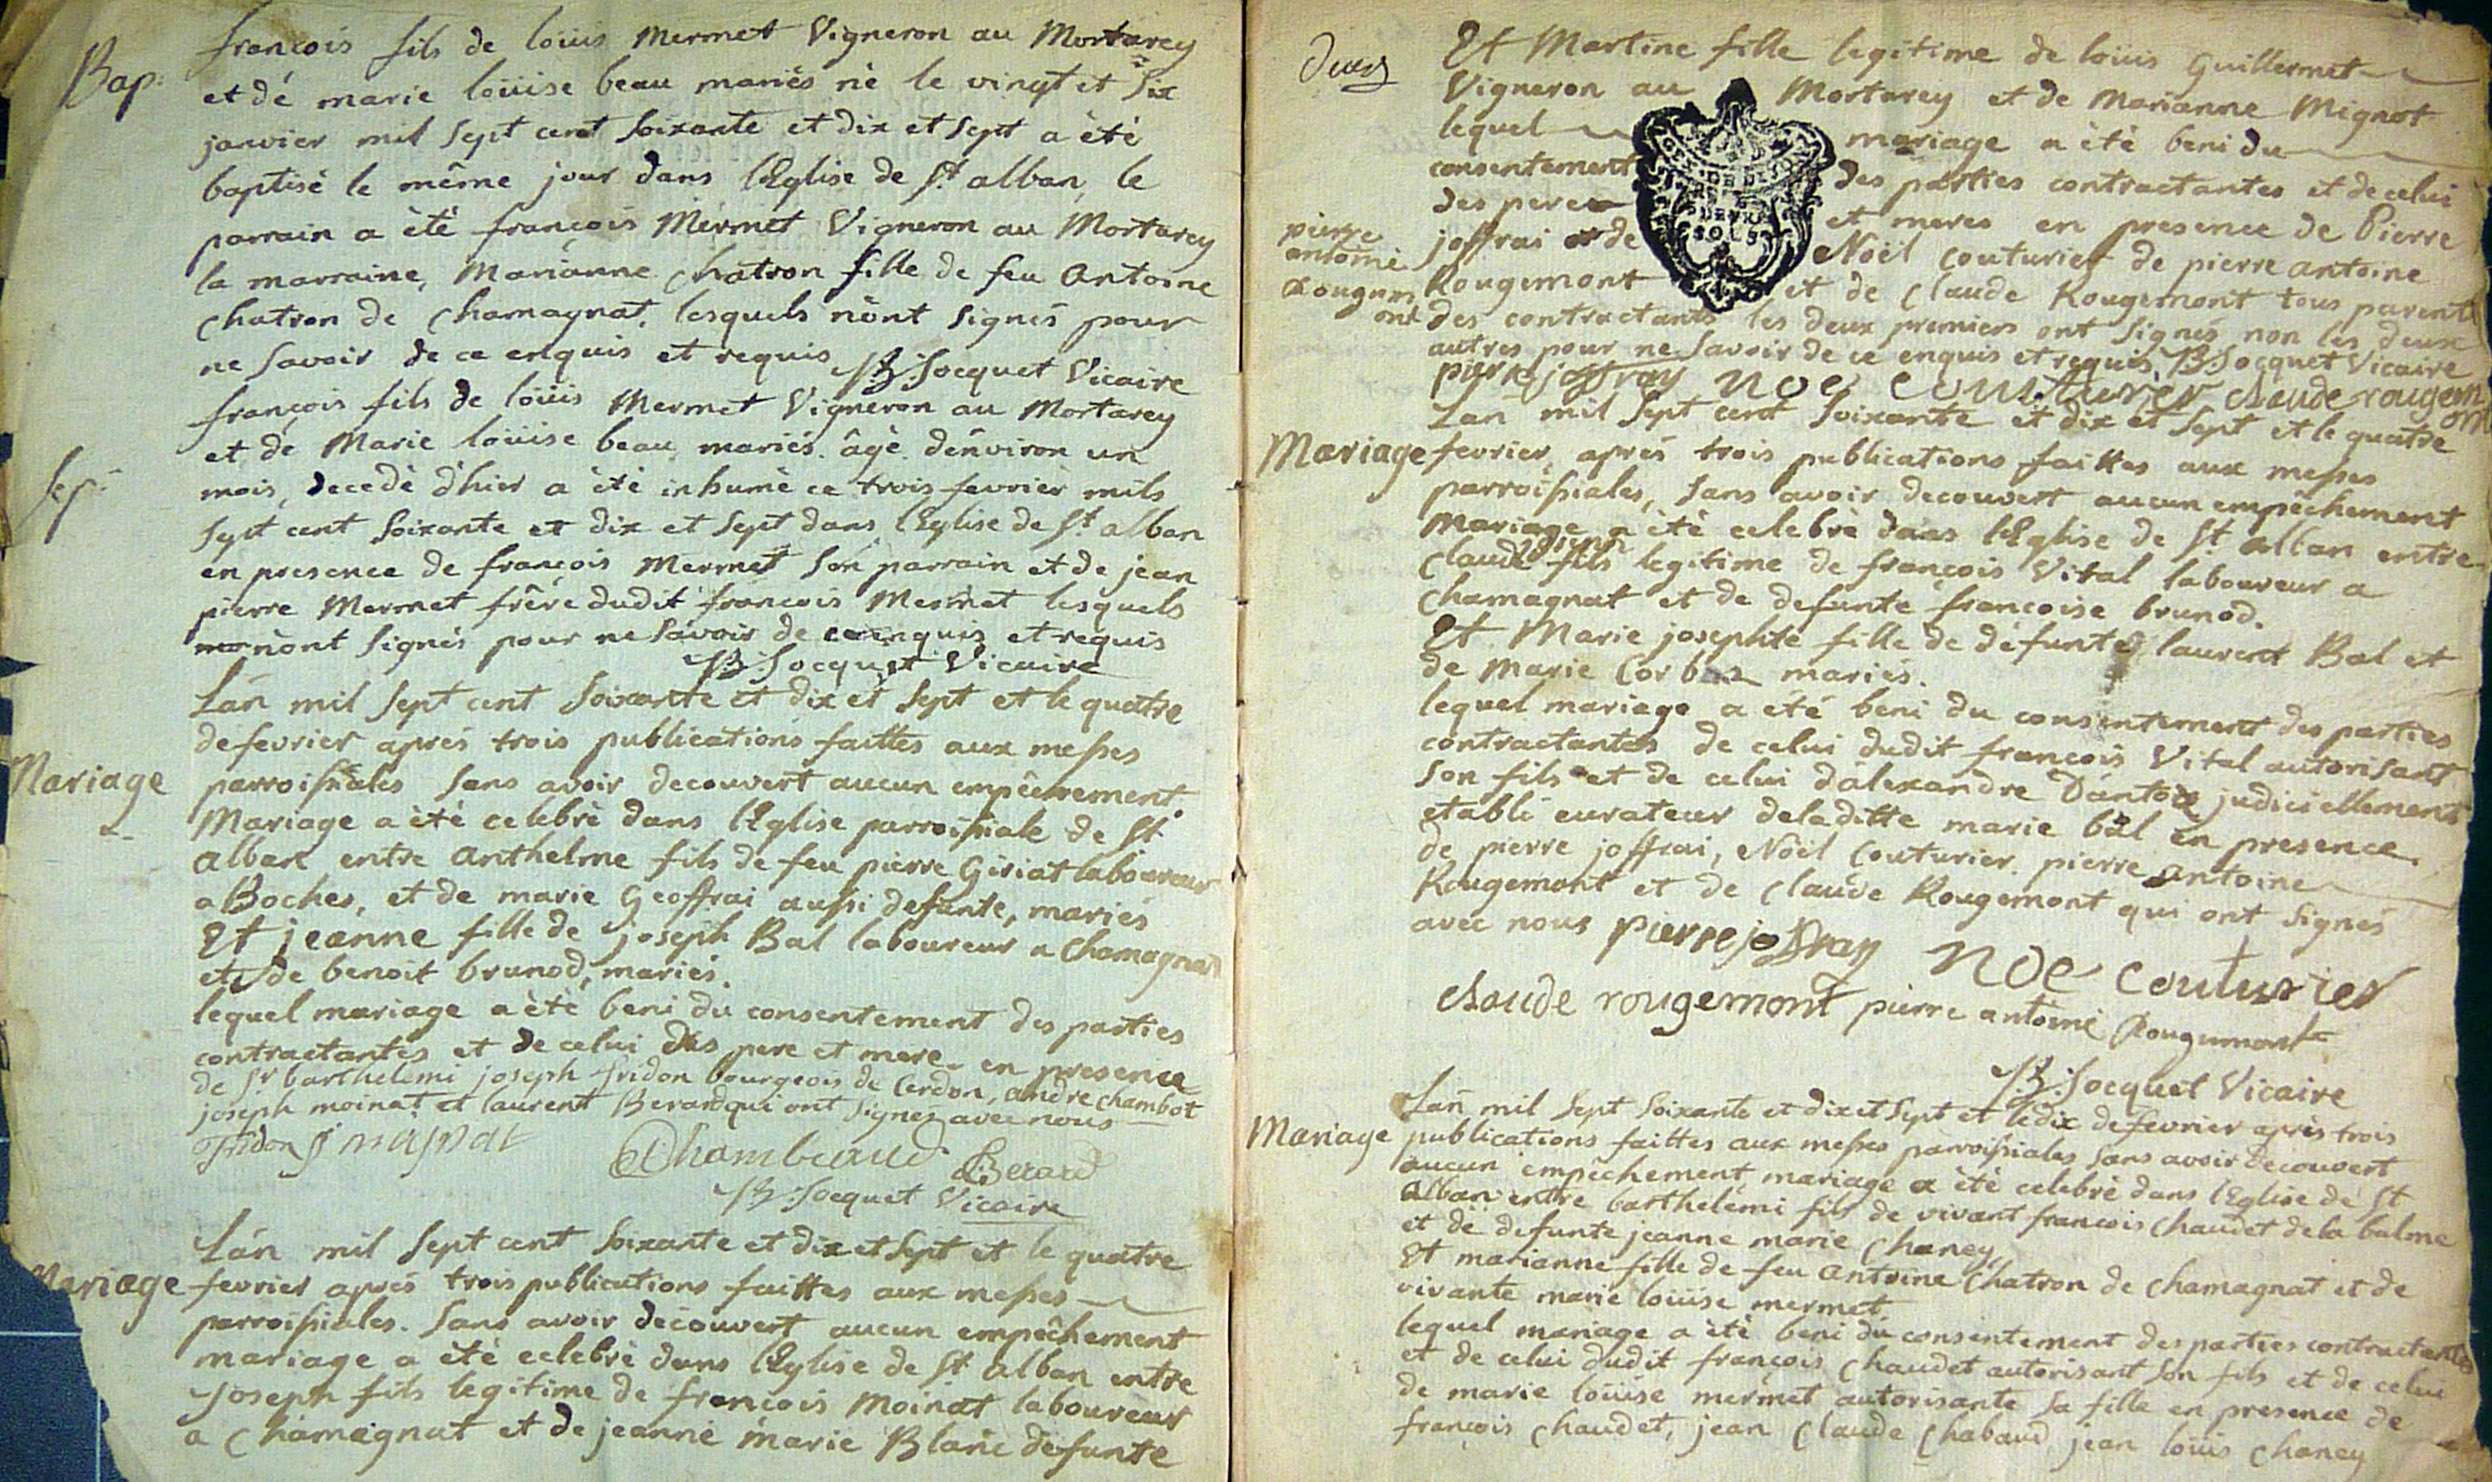 Bap:
françois fils de loüis Mermet Vigneron au Mortarey
et dé marie loüise beau mariés né le vingt et Six
janvier mil Sept cent Soixante et dix et Sept a été
baptisé le même jour dans lEglise de St alban, le
parrain a été françois Mermet Vigneron au Mortarey
la marraine, Marianne Chatron fille de feu Antoine
Chatron de Chamagnat, lesquels n'ont Signés pour
ne Savoir de ce enquis et requis JB: Jocquet Vicaire
Sep:
françois fils de loüis Mermet Vigneron au Mortarey
et de Marie loüise beau mariés. âgé d'environ un
mois, decedé d'hier a été inhumé ce trois fevrier mils
Sept cent Soixante et dix et Sept dans lEglise de St alban
en presence de françois Mermet Son parrain et de jean
pierre Mermet frêre dudit françois Mermet lesquels
n'ont Signés pour ne Savoir de ce enquis et requis
JB: Jocquet Vicaire
Mariage
L'an mil Sept cent Soixante et dix et Sept et le quatre
de fevrier aprés trois publications faittes aux messes
parroissiales Sans avoir decouvert aucun empêchement.
Mariage a été celebré dans lEglise parroissiale de St
Alban entre Anthelme fils de feu pierre Giriat laboureur
a Boches, et de marie Geoffrai aussi defunte, mariés
Et jeanne fille de joseph Bal laboureur a Chamagnat
et de benoit brunod, mariés.
lequel mariage a été beni du consentement des parties
contractantes et de celui des pere et mere en presence
de Sr barthelemi joseph fridon bourgeois de Cerdon, andre chambot
joseph moinat et laurent Berard qui ont Signes avec nous
Fridon J moinat Chambaud Berard
JB: Jocquet Vicaire
Mariage
L'an mil Sept cent Soixante et dix et Sept et le quatre
fevrier aprés trois publications faittes aux messes
parroissiales. Sans avoir découvert aucun empêchement
mariage a été celebré dans lEglise de St alban entre
Joseph fils legitime de françois Moinat laboureur
a Chamagnat et de jeanne marie Blanc defunte
deux
Et Martine fille legitime de loüis Guillermet
Vigneron au Mortarey et de Marianne Mignot
lequel mariage a été beni du
consentement des parties contractantes et de celui
des peres et meres en presence de Pierre
joffrai de Noël couturier de pierre antoine
pierre
antoine
Rougem
ont
Rougemont et de Claude Rougemont tous parents
des contractants les deux premiers ont Signés non les deux
autres pour ne Savoir de ce enquis et requis. JB: Jocquet Vicaire
pierre joffray noe couturier claude rougem
ont
GEN DE DIJON
DEUX
SOLS
Mariage
L'an mil Sept cent Soixante et dix et Sept et le quatre
fevrier, aprés trois publications faittes aux messes
parroissiales, Sans avoir decouvert aucun empêchement
Mariage a été celebré dans lEglise de St Alban entre
Claude fils legitime de françois Vital laboureur a
Chamagnat et de defunte françoise brunod.
Et Marie josephte fille de défunts laurent Bal et
de Marie Corbaz mariés.
lequel mariage a été beni du consentement des parties
contractantes de celui dudit françois Vital autorisant
Son fils et de celui d'alexandre Dantoix judiciellement
etabli curateur deladitte marie bal en presence.
de pierre joffrai, Noël Couturier. pierre antoine
Rougemont et de Claude Rougemont qui ont Signés
avec nous pierre joffray noe couturier
claude rougemont pierre antoine Rougemont
JB: Jocquet Vicaire
Mariage
L'an mil Sept Soixante et dix et Sept et le dix de fevrier aprés trois
publications faittes aux messes parroissiales Sans avoir decouvert
aucun empêchement mariage a été celebré dans lEglise de St
Alban entre barthelemi fils de vivant françois Chaudet de la balme
et de defunte jeanne marie Chaney
Et marianne fille de feu Antoine Chatron de Chamagnat et de
vivante marie loüise mermet
lequel mariage a été beni du consentement des parties contractantes
et de celui dudit françois Chaudet autorisant Son fils et de celui
de marie loüise mermet autorisante Sa fille en presence de
françois Chaudet, jean Claude Chabaud jean loüis Chaney